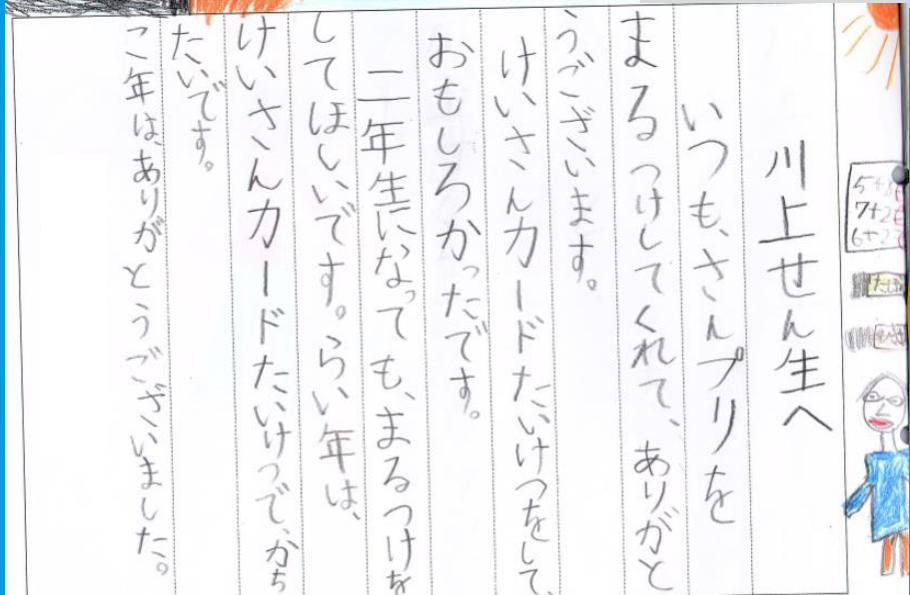 川上せん生へ
いつも、さんプリを
まるつけしてくれて、ありがと
うございます。
けいさんカードたいけつをして、
おもしろかったです。
二年生になっても、まるつけを
してほしいです。らい年は、
けいさんカードたいけつで、かち
たいです。
こ年は、ありがとうございました。
5+
7+2
6+2